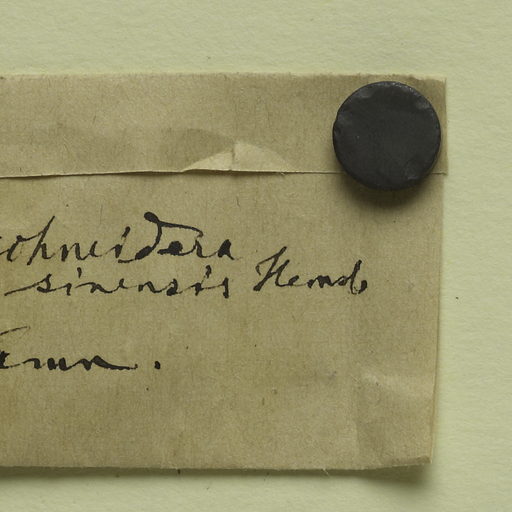 chneidera
sinensis Hemsl